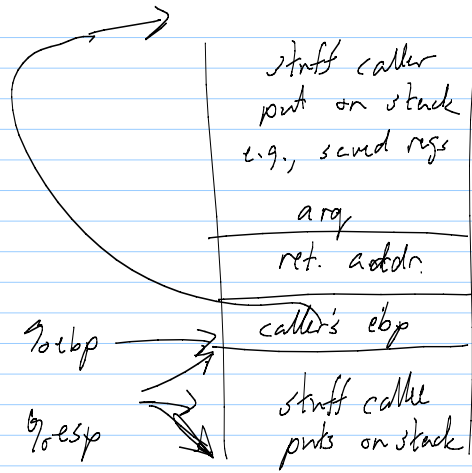 stuff caller
put on stack
e.g., saved regs
arg
ret. addr.
caller's ebp
%ebp
%esp
stuff calle
puts on stack